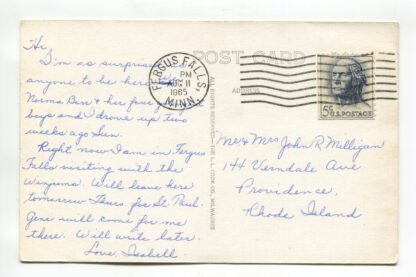 Hi,
I'm as surprised as
anyone to be here.
Norma Ben & her four
boys and I drove up two
weeks ago Sun.
Right now I am in Fergus
Falls visiting with the
Will leave here
tomorrow Thurs for St. Paul.
Gene will come for me
there. Will write later.
Love, Isabell.
POST CARD
ADDRESS
FERGUS FALLS,
PM
AUG 11
1965
MINN.
5¢ U.S. POSTAGE
ALL RIGHTS RESERVED—THE L. L. COOK CO., MILWAUKEE
Mr & Mrs John R Milligan
144 Verndale Ave
Providence,
Rhode Island